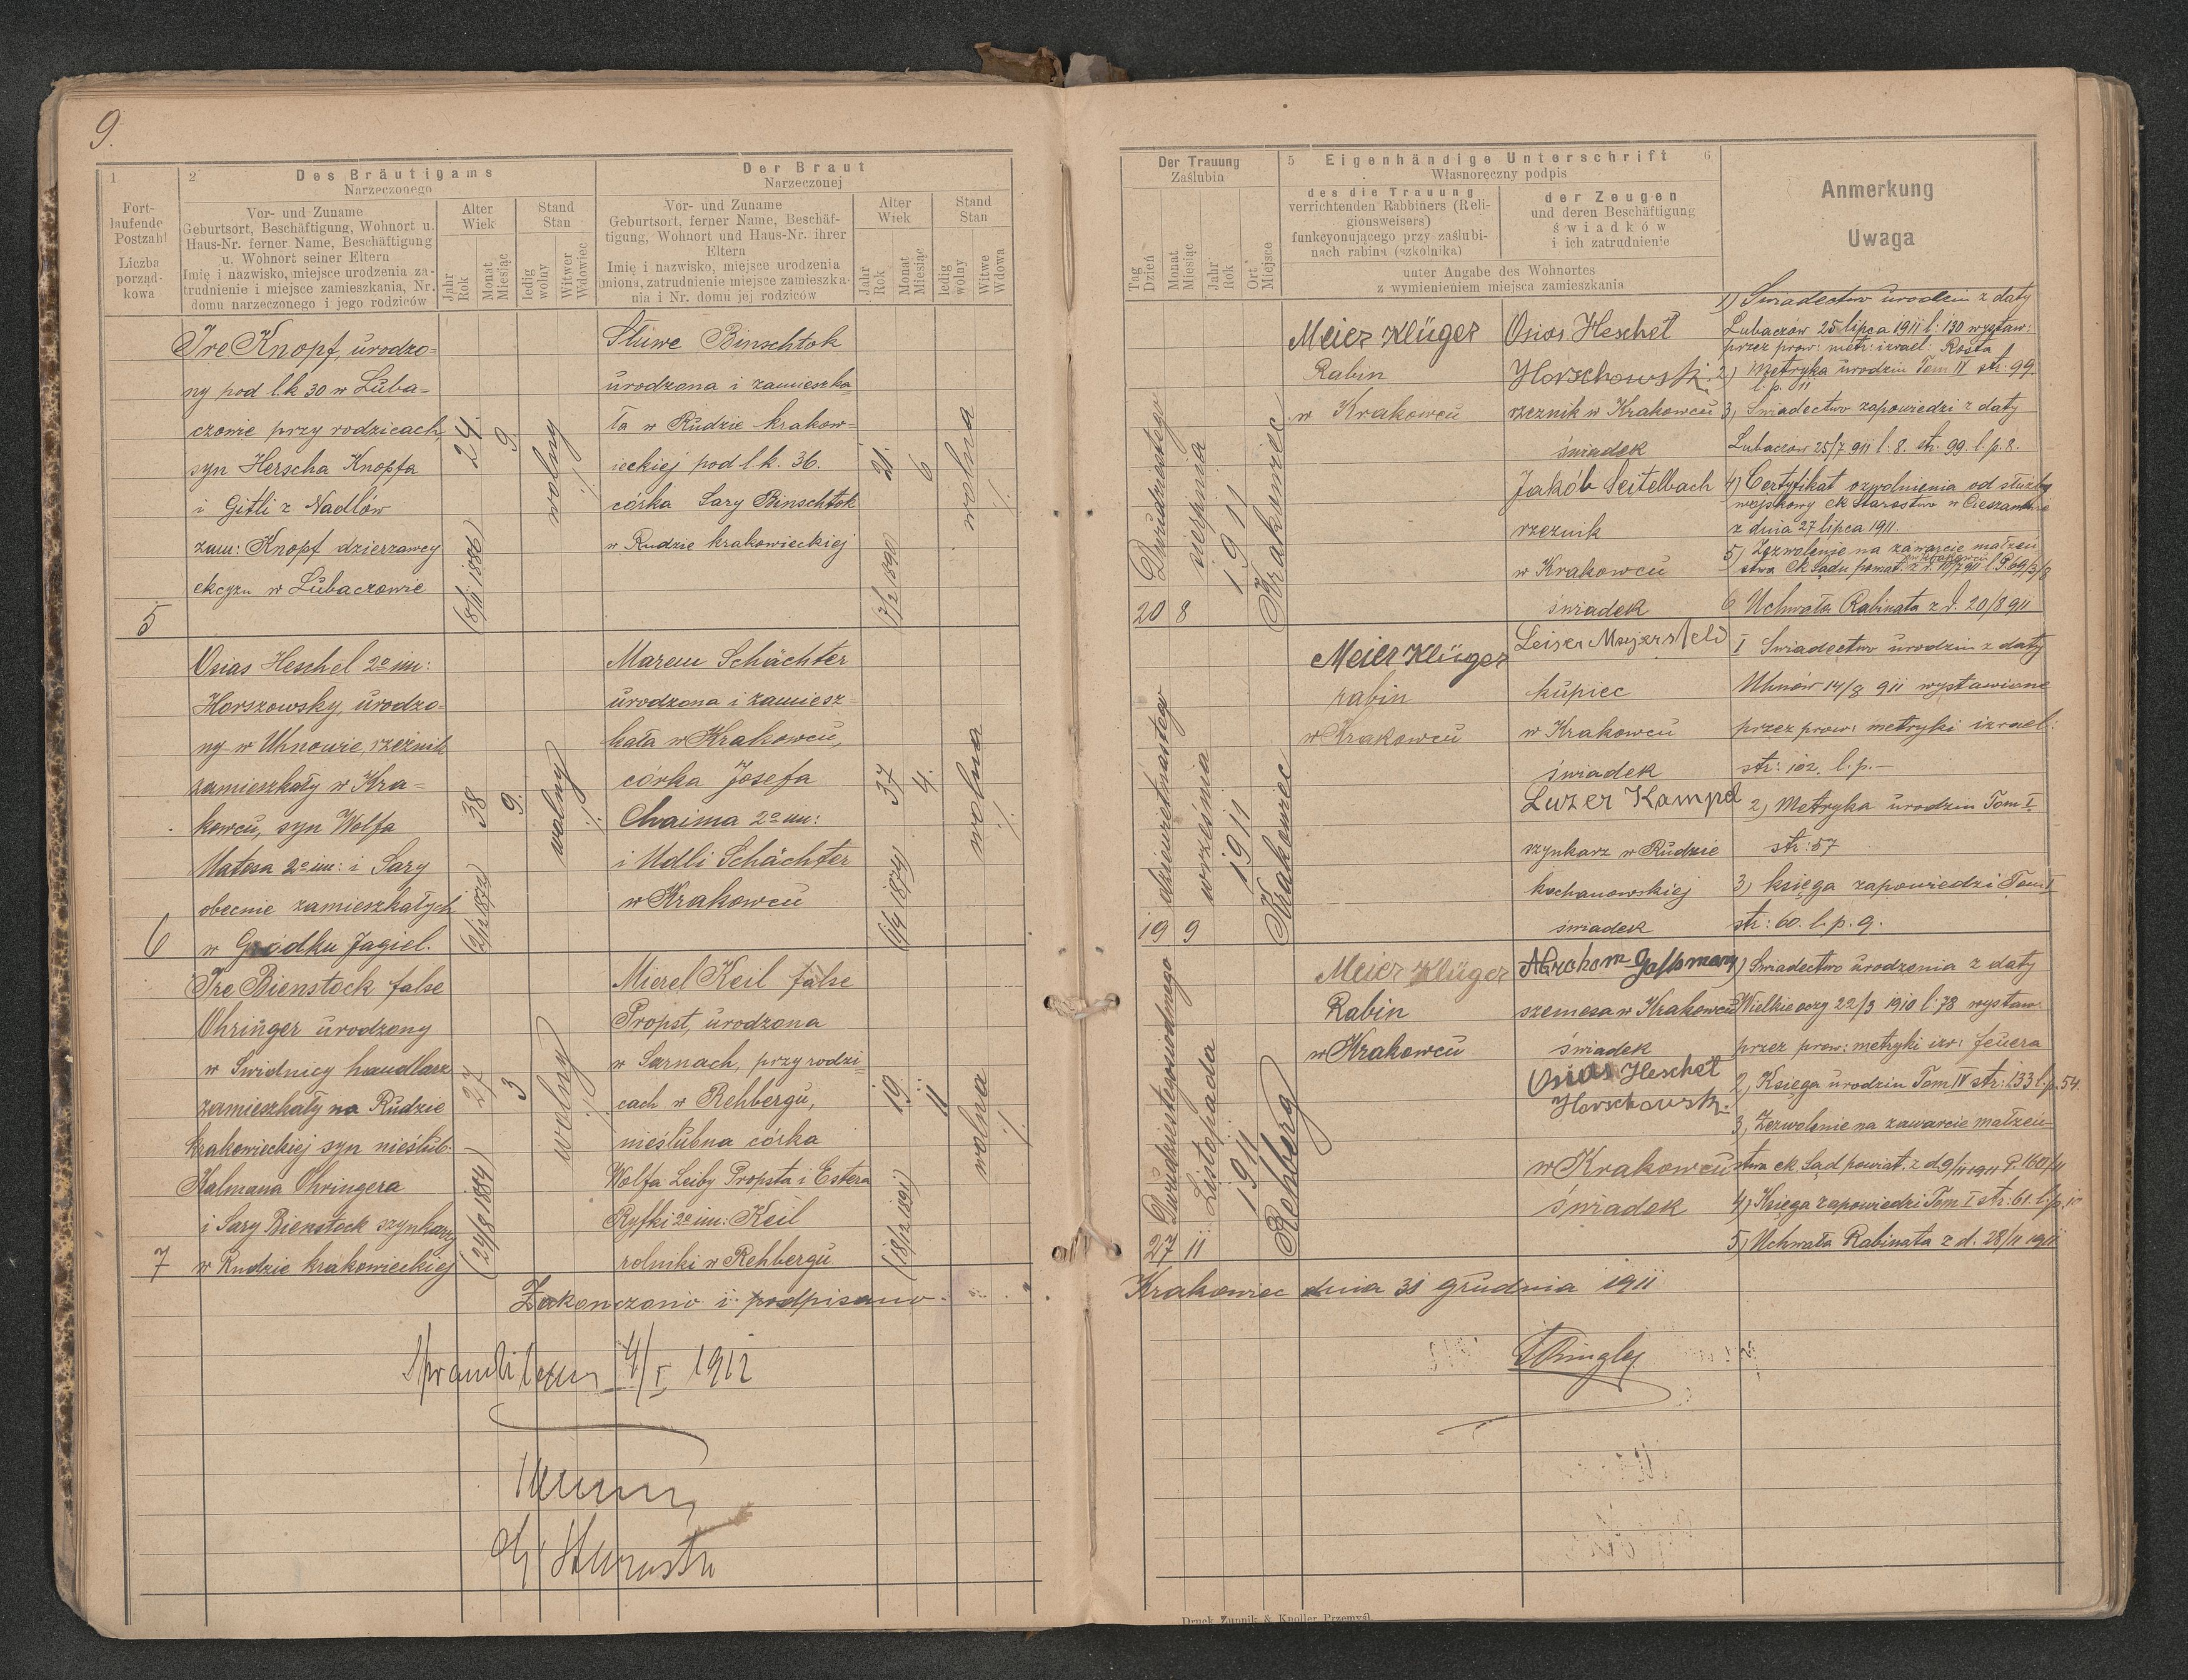 9.
1
Fort-
laufende
Postzahl
Liczba
porząd-
kowa
2
Des Bräutigams
Narzeczonego
Vor- und Zuname
Geburtsort, Beschäftigung, Wohnort u.
Haus-Nr. ferner Name, Beschäftigung
u. Wohnort seiner Eltern
Imię i nazwisko, miejsce urodzenia za-
trudnienie i miejsce zamieszkania, Nr.
domu narzeczonego i jego rodziców
Alter
Wiek
Jahr
Rok
Monat
Miesiąc
Stand
Stan
ledig
wolny
Witwer
Wdowiec
Der Braut
Narzeczonej
Vor- und Zuname
Geburtsort, ferner Name, Beschäf-
tigung, Wohnort und Haus-Nr. ihrer
Eltern
Imię i nazwisko, miejsce urodzenia
imiona, zatrudnienie miejsce zamieszka-
nia i Nr. domu jej rodziców
Alter
Wiek
Jahr
Rok
Monat
Miesiąc
Stand
Stan
ledig
wolny
Witwe
Wdowa
Der Trauung
Zaślubin
Tag
Dzień
Monat
Miesiąc
Jahr
Rok
Ort
Miejsce
5 Eigenhändige Unterschrift 6
Własnoręczny podpis
des die Trauung
verrichtenden Rabbiners (Reli-
gionsweisers)
funkcyonującego przy zaślubi-
nach rabina (szkolnika)
der Zeugen
und deren Beschäftigung
świadków
i ich zatrudnienie
unter Angabe des Wohnortes
z wymienieniem miejsca zamieszkania
Anmerkung
Uwaga
5
Ire Knopf, urodzo=
ny pod l.k 30 w Luba=
czowie przy rodzicach,
syn Herscha Knopfa
i Gitli z Nadlów
zam: Knopf dzierzawcy
ekcyzu w Lubaczowie
24
9.
(8/11 1886)
wolny
Sluwe Binschtok
urodzona i zamieszka
ła w Rudzie krakow=
ieckiej pod l.k. 36.
córka Sary Binschtok
w Rudzie krakowieckiej
21
6
(7/2 1890)
wolna
20 8
Dwudziestego
sierpnia
1911
Krakowiec
Meier Klüger
Rabin
w Krakowcu
Osias Heschel
Horschowski
rzeznik w Krakowcu
świadek
Jakób Seitelbach
rzeznik
w Krakowcu
świadek
1) Swiadectwo urodzin z daty
Lubaczów 25 lipca 1911 l: 130 wystaw:
przez prow: metr: izrael: Rosta
2) Metryka urodzin Tom IV str: 99.
l. p. 11
3, Swiadectwo zapowiedzi z daty
Lubaczów 25/7 911 l: 8. str. 99. l. p. 8.
4) Certyfikat ozwolnienia od służby
wojskowy ck Starostwo w Cieszanowie
z dnia 27 lipca 1911.
5) Zezwolenie na zawarcie małżeń
w Krakowcu
6 Uchwała Rabinata z d. 20/8 911
6
Osias Heschel 2o im:
Horszowsky, urodzo=
ny w Uhnowie, rzeźnik
zamieszkały w Kra=
kowcu, syn Wolfa
Natesa 2o im: i Sary
obecnie zamieszkałych
w Gródku Jagiel.
38
9.
wolny
Marem Schächter
urodzona i zamiesz=
kała w Krakowcu,
córka Josefa
Chaima 2o im:
i Udli Schächter
w Krakowcu
37
4.
wolna
19 9
dziewietnastego
września
1911
Krakowiec
Meier Klüger
rabin
w Krakowcu
Leiser Mayersfeld
kupiec
w Krakowcu
świadek
Luzer Kampel
szynkarz w Rudzie
kochanowskiej
świadek
I Swiadectwo urodzin z daty
Uhnów 14/8 911 wystawione
przez prow: metryki izrael:
str: 102. l. p. —
2) Metryka urodzin Tom I
str: 57
3) księga zapowiedzi Tom I
str: 60. l. p. 9.
7
Ire Bienstock false
Ohringer urodzony
w Swidnicy handlarz
zamieszkały na Rudzie
krakowieckiej syn nieślub:
Kalmana Ohringera
i Sary Bienstock szynkarzy
w Rudzie krakowieckiej
27
3
(24/8 1884)
wolny
Mierel Keil false
Propst, urodzona
w Sarnach, przy rodzi=
cach w Rehbergu,
nieślubna córka
Wolfa Leiby Propsta i Estera
Ryfki 2o im: Keil
rolniki w Rehbergu
19
11
(18/12 1891)
wolna
27 11
Dwudziestegosiodmego
Listopada
1911
Rehberg
Meier Klüger
Rabin
w Krakowcu
szemesa w Krakowcu
świadek
Osias Heschel
Horschowski
w Krakowcu
świadek
1) Swiadectwo urodzenia z daty
Wielkie oczy 22/3 1910 l: 78 wystaw.
przez prow: metryki izr: Feuera
2, Księga urodzin Tom IV str: 133 l. p. 54.
3, Zezwolenie na zawarcie małżeń=
stwa ck Sąd powiat. z d 9/11 1911
4) Księga zapowiedzi Tom I str: 61. l. p. 10
5) Uchwała Rabinata z d. 28/11 1911
Zakończono i podpisano
Krakowiec dnia 31 grudnia 1911
4/I 1912
Druck Zupnik & Knoller Przemyśl